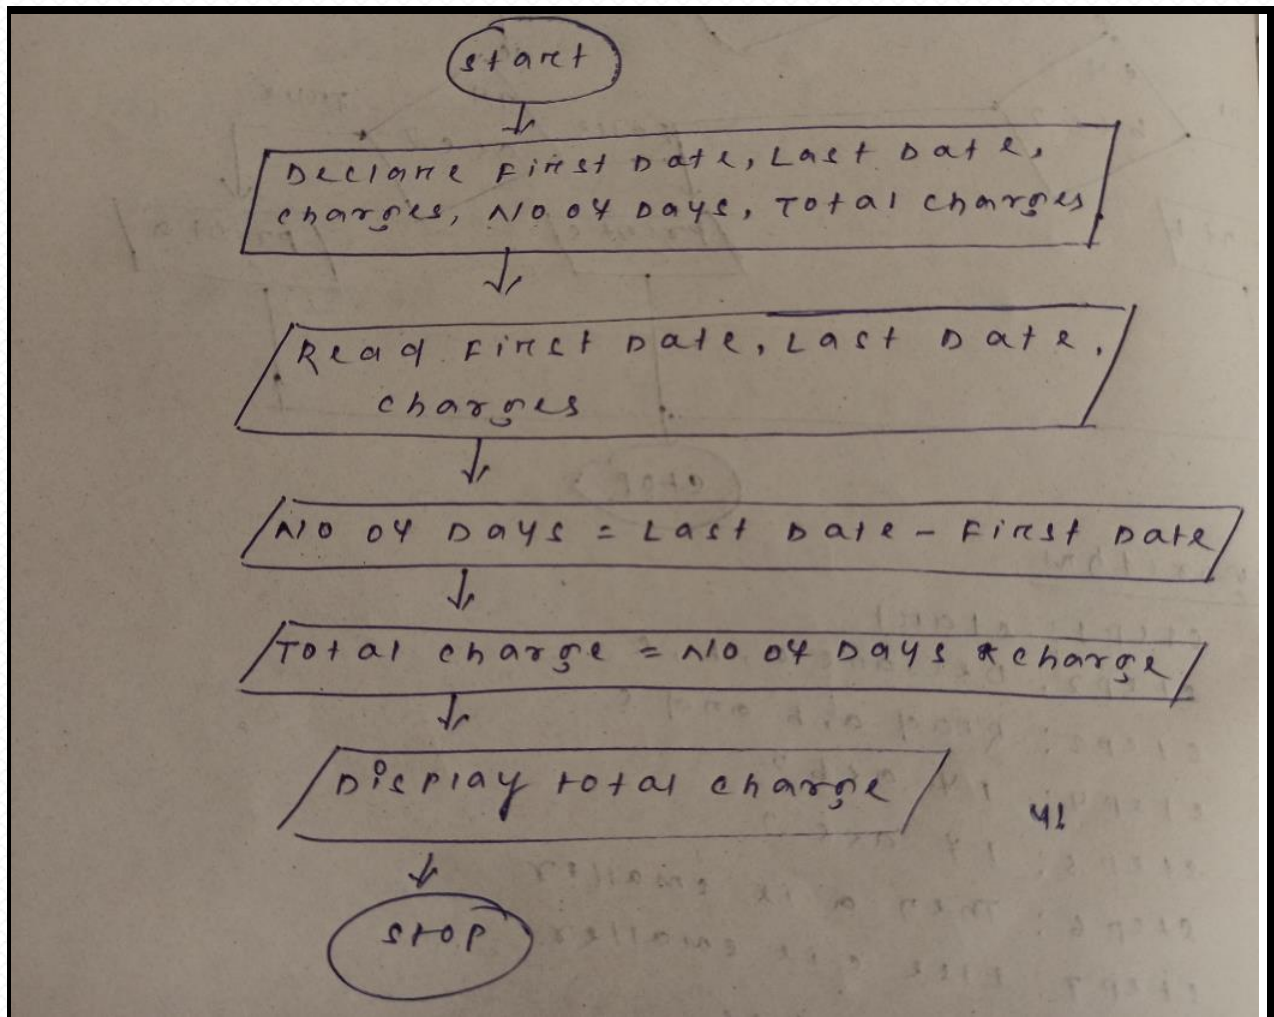 Start
Declare First Date, Last Date,
charges, No of Days, Total charges
Read First Date, Last Date,
charges
No of Days = Last Date - First Date
Total charge = No of Days * charge
Display total charge
41
Stop